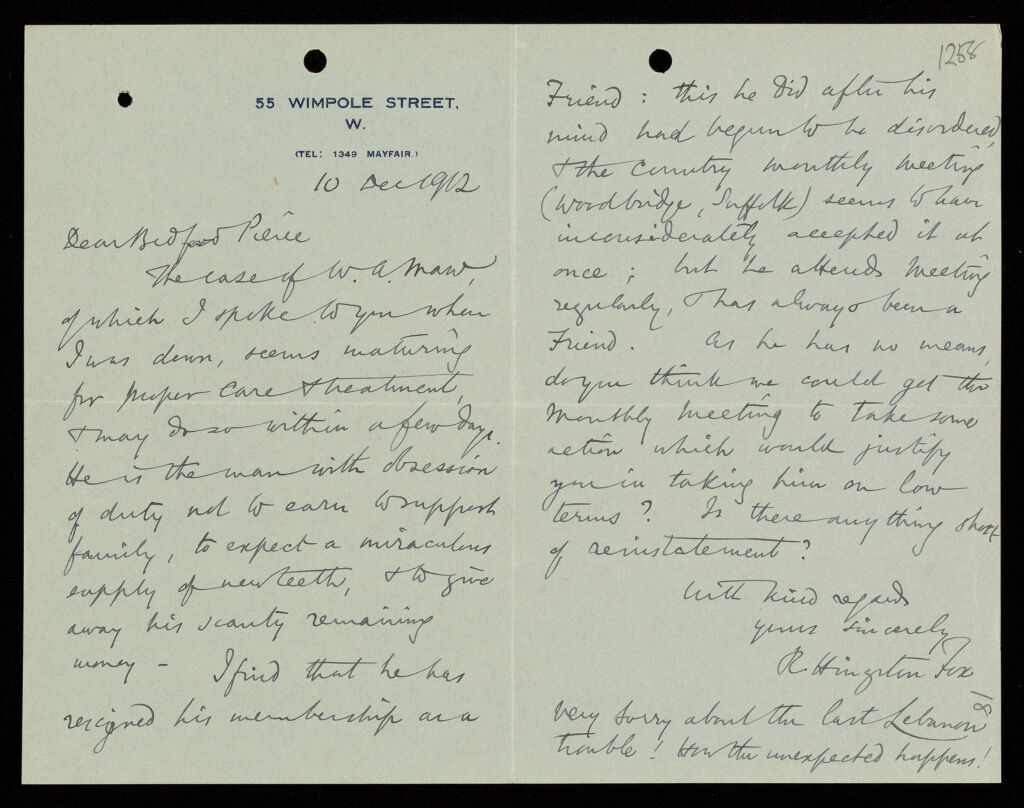 55 WIMPOLE STREET,
W.
(TEL: 1349 MAYFAIR.)
10 Dec 1912
Dear Bedford Pierce
The case of W. A. Maw,
of which I spoke to you when
I was down, seems maturing
for proper care & treatment,
& may do so within a few days.
He is the man with obsession
of duty not to earn to support
family, to expect a miraculous
supply of new teeth, & to give
away his scanty remaining
money - I find that he has
resigned his membership as a
1258
Friend : this he did after his
mind had begun to be disordered,
& the country monthly meeting
(Woodbridge, Suffolk) seems to have
inconsiderately accepted it at
once ; but he attends Meeting
regularly, & has always been a
Friend. As he has no means,
do you think we could get the
Monthly Meeting to take some
action which would justify
you in taking him on low
terms ? Is there anything short
of reinstatement ?
With kind regards
yours sincerely
R. Hingston Fox
81
Very sorry about the last Lebanon
trouble ! How the unexpected happens !